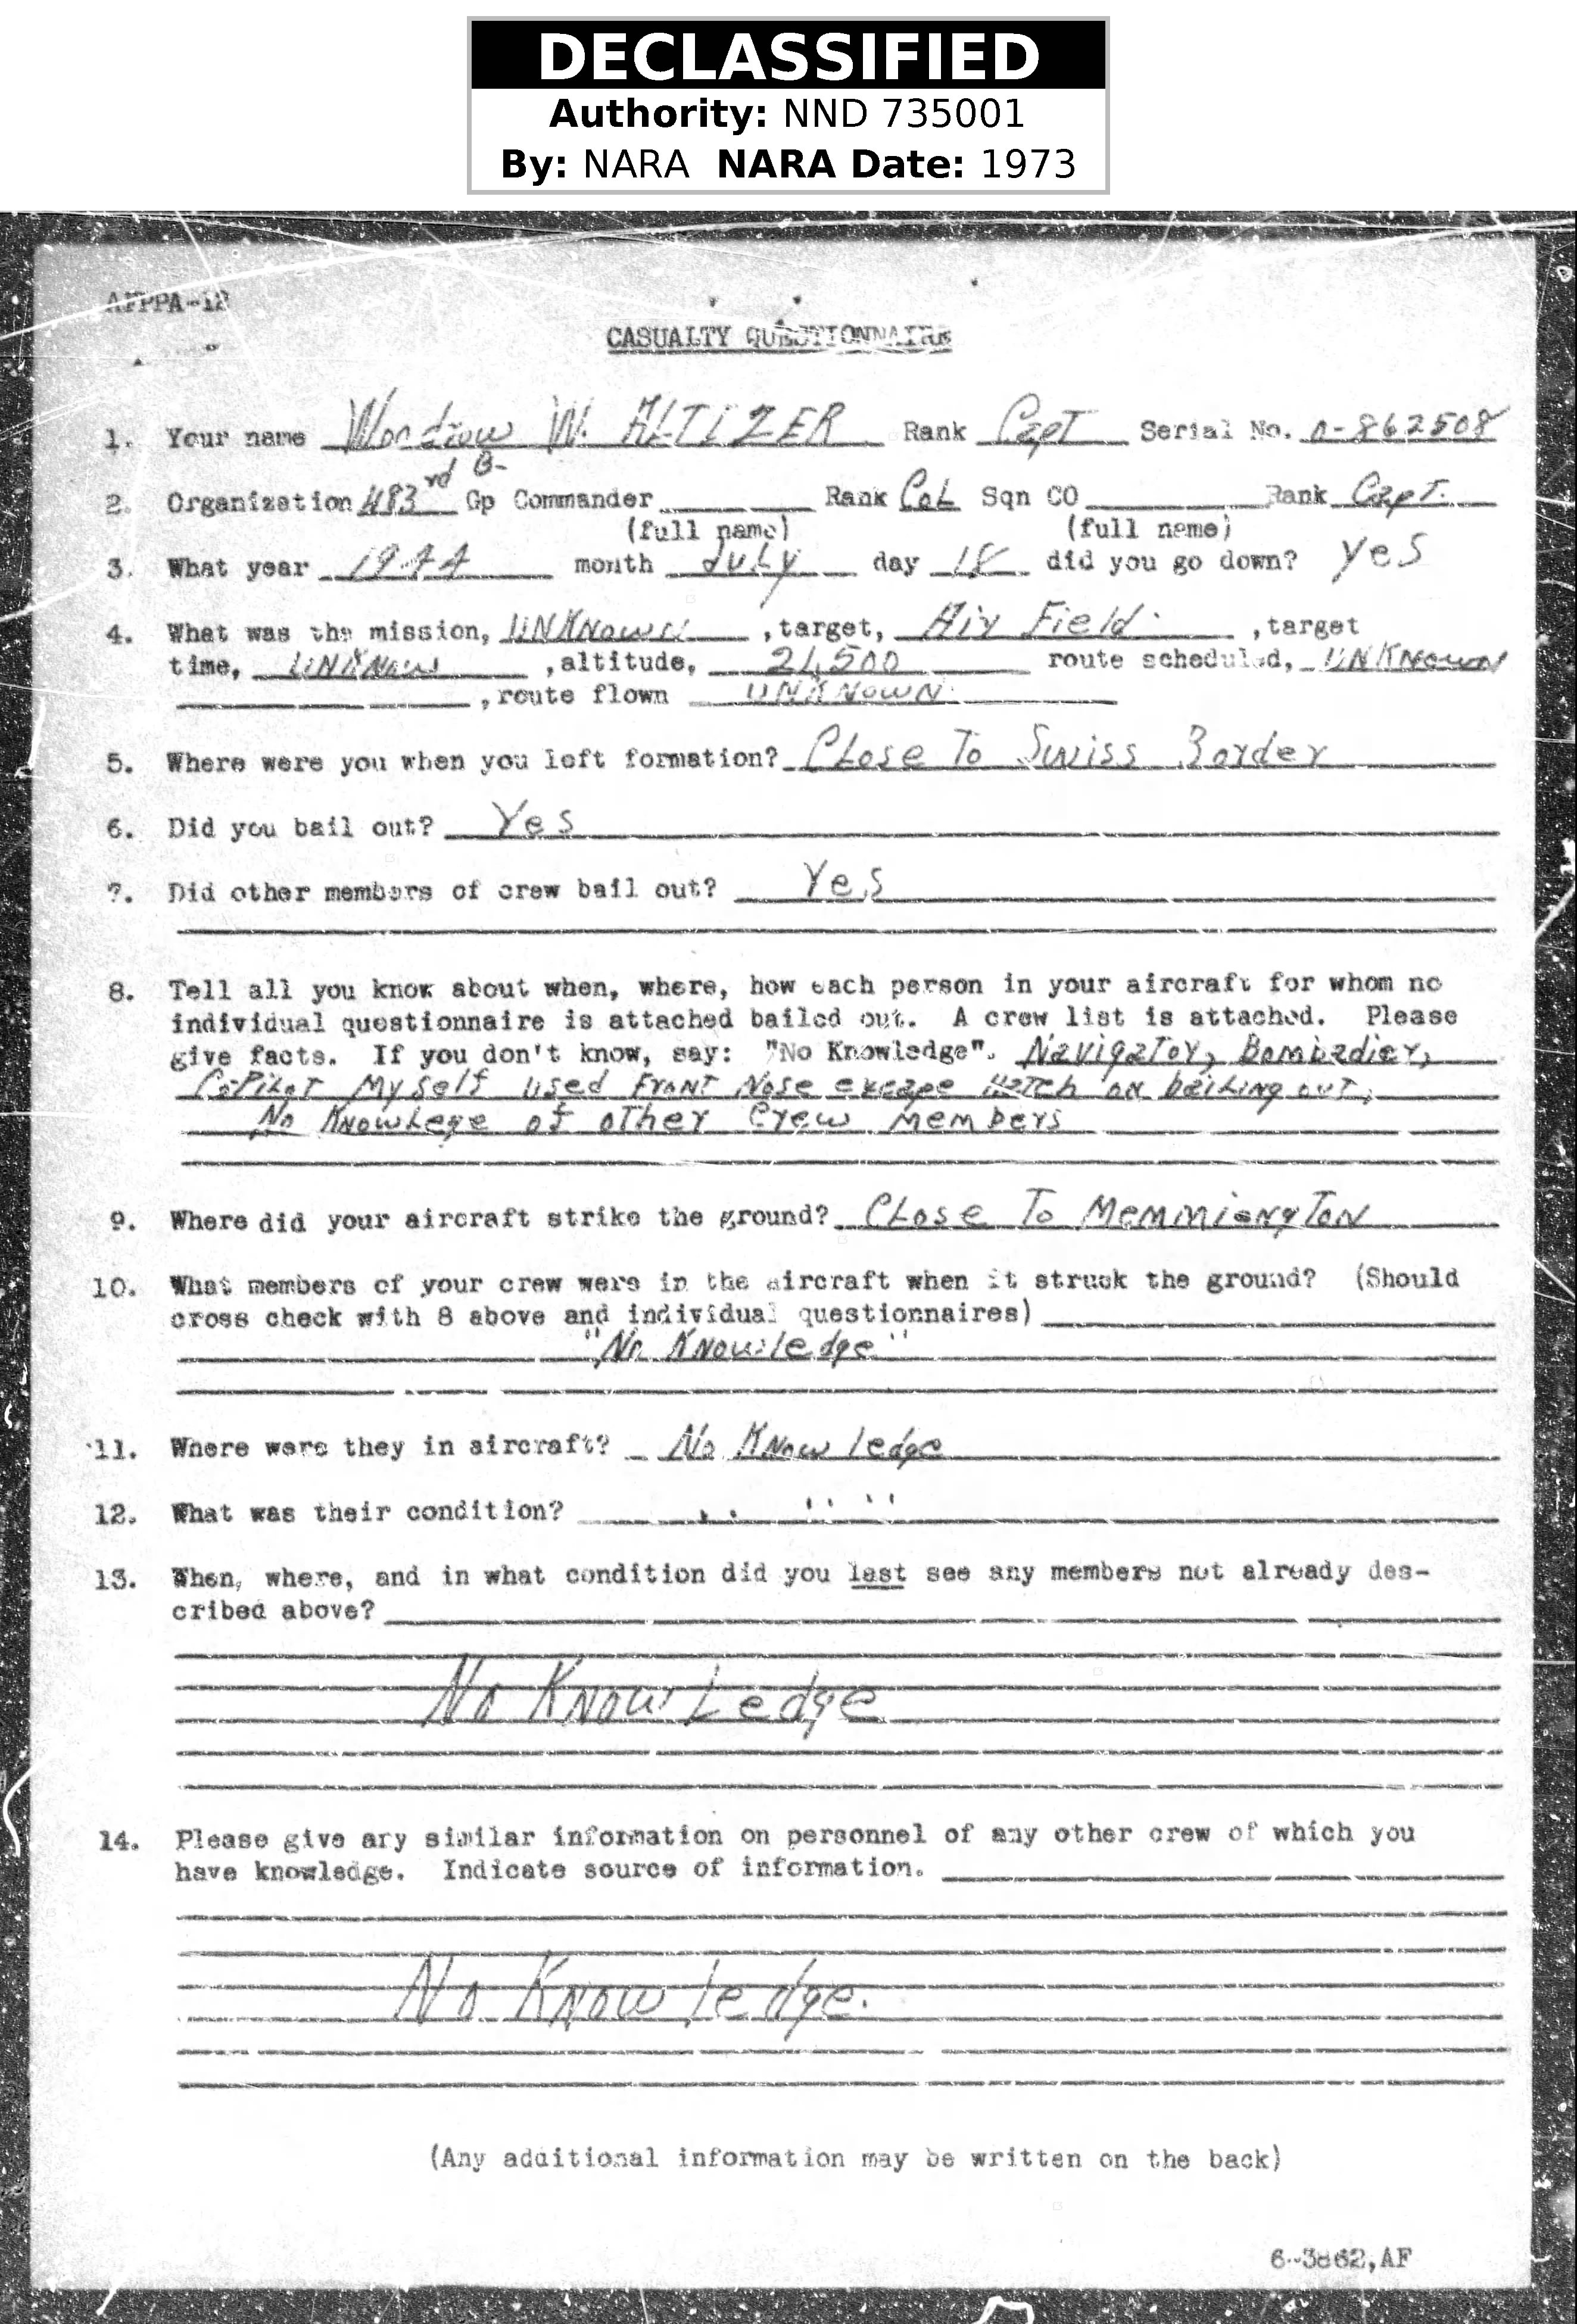 DECLASSIFIED
Authority: NND 735001
By: NARA NARA Date: 1973
AFPPA-12
CASUALTY QUESTIONNAIRE
1. Your name Woodrow W. ALTIZER Rank Capt Serial No. O-862508
2. Organization 483rd B- Gp Commander Rank Col Sqn CO Rank Capt.
(full name) (full name)
3. What year 1944 month July day 18 did you go down? yes
4. What was the mission, UNKNOWN , target, Air Field , target
time, UNKNOWN , altitude, 21,500 route scheduled, UNKNOWN
, route flown UNKNOWN
5. Where were you when you left formation? CLose To Swiss Border
6. Did you bail out? Yes
7. Did other members of crew bail out? Yes
8. Tell all you know about when, where, how each person in your aircraft for whom no
individual questionnaire is attached bailed out. A crew list is attached. Please
give facts. If you don't know, say: "No Knowledge". NavigaTor, Bombadier,
Co-PiLOT MySelf used FronT Nose excape HaTch on baiLing ouT,
No KnowLege of oTher Crew Members
9. Where did your aircraft strike the ground? CLose To MemmiangTon
10. What members of your crew were in the aircraft when it struck the ground? (Should
cross check with 8 above and individual questionnaires)
"No Knowledge"
11. Where were they in aircraft? No Knowledge
12. What was their condition? " "
13. When, where, and in what condition did you last see any members not already des-
cribed above?
No KnowLedge
14. Please give any similar information on personnel of any other crew of which you
have knowledge. Indicate source of information.
No Knowledge.
(Any additional information may be written on the back)
6-3862,AF